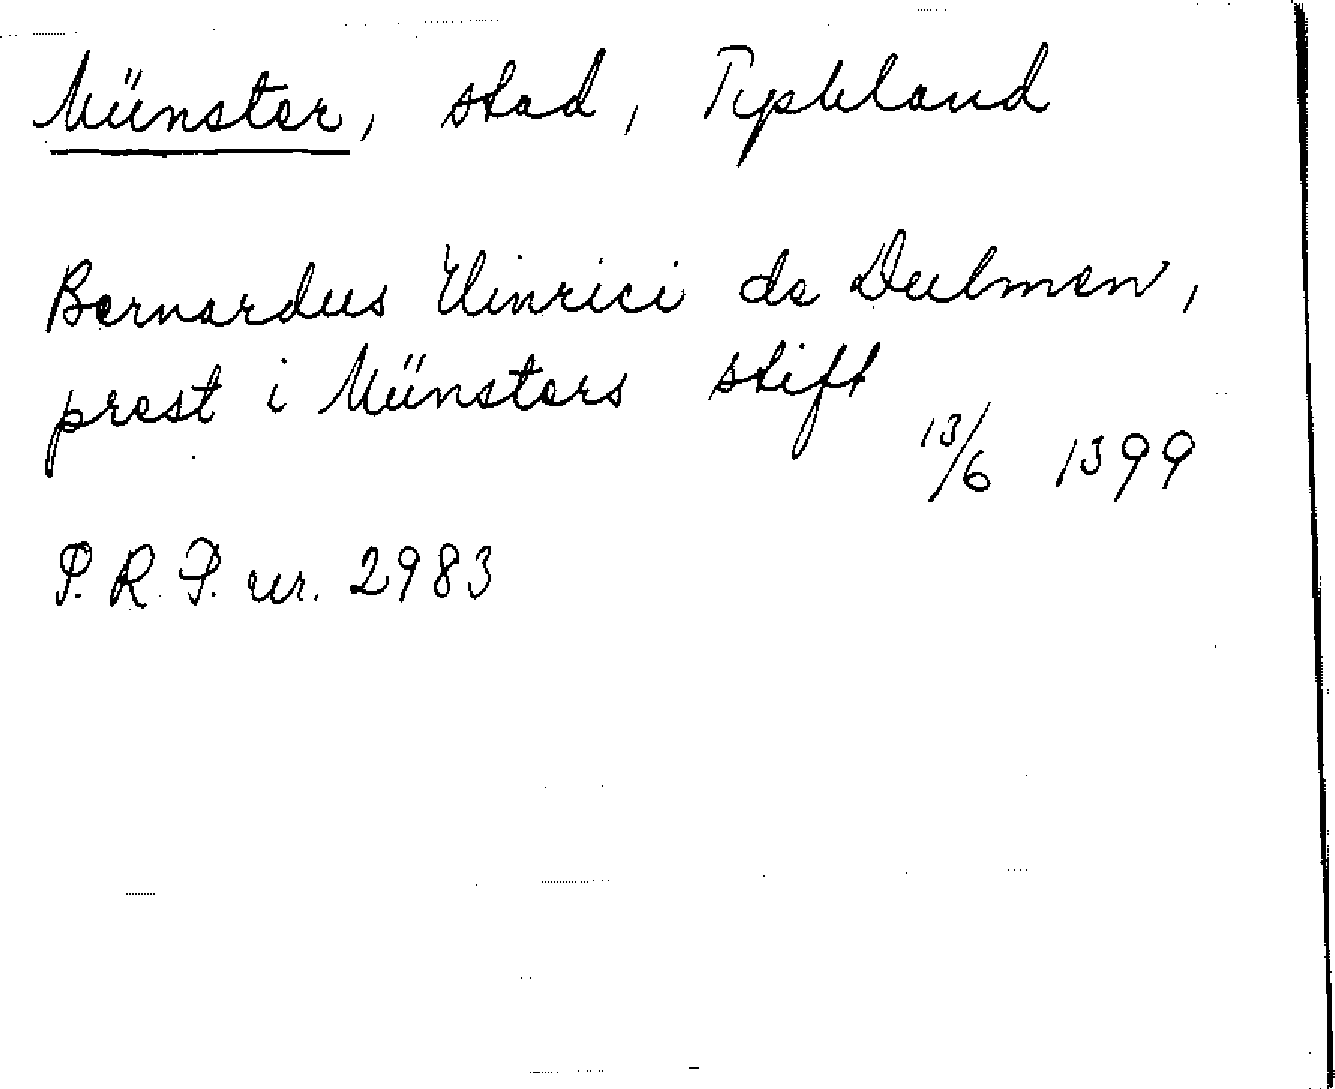 Münster, stad, Tyskland
Bernardus Hinrici de Dulmen,
prest i Münsters stift
13/6 1399
P. R. P. nr. 2983